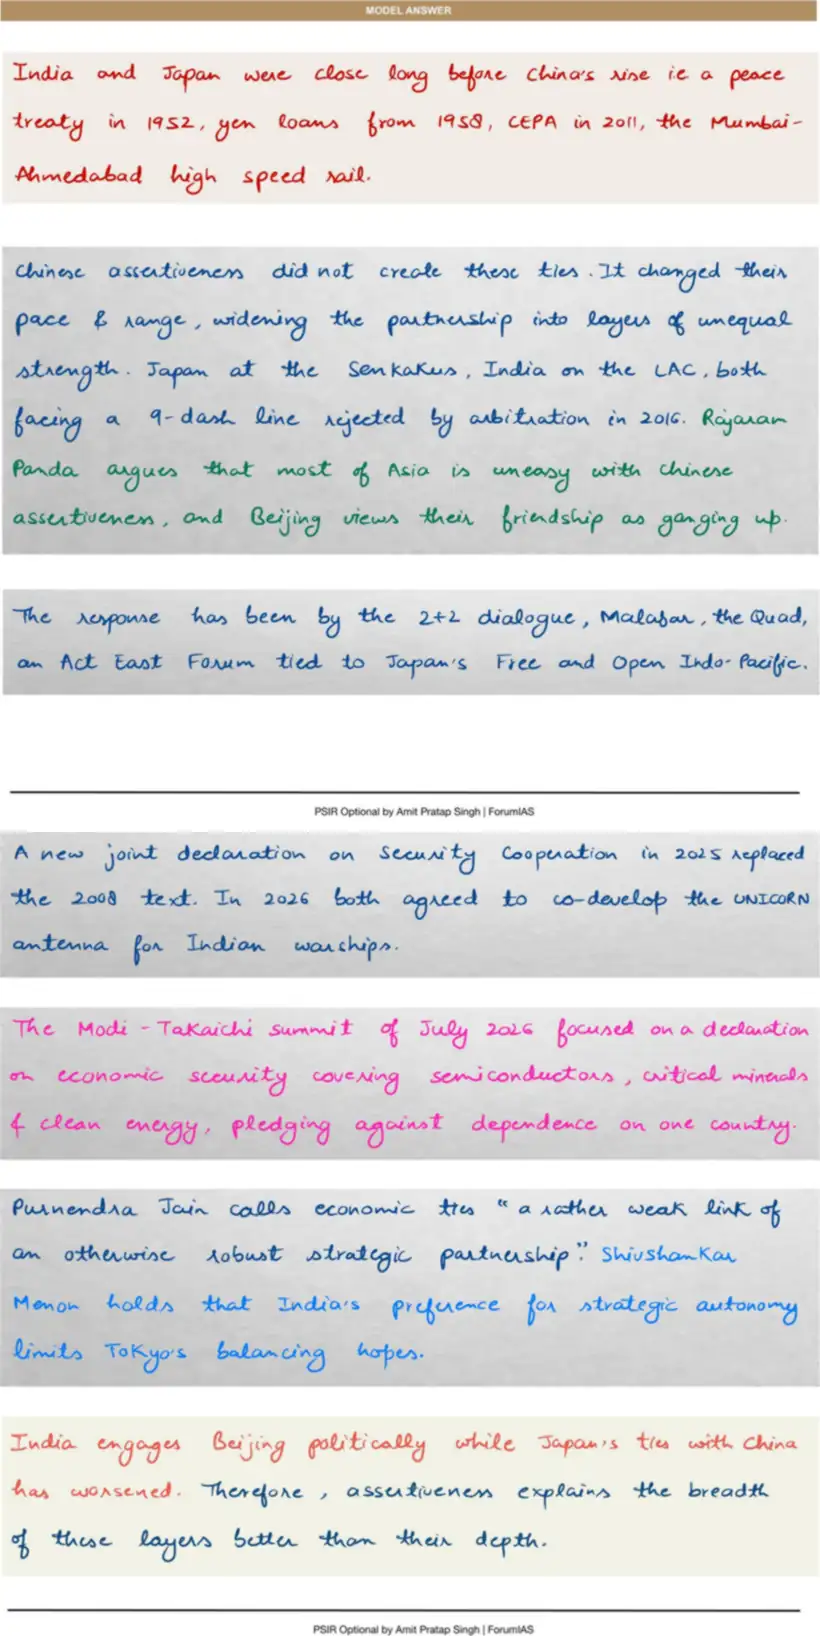 MODEL ANSWER
India and Japan were close long before China's rise i.e a peace
treaty in 1952, yen loans from 1958, CEPA in 2011, the Mumbai-
Ahmedabad high speed rail.
Chinese assertiveness did not create these ties. It changed their
pace & range, widening the partnership into layers of unequal
strength. Japan at the Senkakus, India on the LAC, both
facing a 9-dash line rejected by arbitration in 2016. Rajaram
Panda argues that most of Asia is uneasy with Chinese
assertiveness, and Beijing views their friendship as ganging up.
The response has been by the 2+2 dialogue, Malabar, the Quad,
an Act East Forum tied to Japan's Free and Open Indo-Pacific.
PSIR Optional by Amit Pratap Singh | ForumIAS
A new joint declaration on Security Cooperation in 2025 replaced
the 2008 text. In 2026 both agreed to co-develop the UNICORN
antenna for Indian warships.
The Modi - Takaichi summit of July 2026 focused on a declaration
on economic security covering semiconductors, critical minerals
& clean energy, pledging against dependence on one country.
Purnendra Jain calls economic ties "a rather weak link of
an otherwise robust strategic partnership". Shivshankar
Menon holds that India's preference for strategic autonomy
limits Tokyo's balancing hopes.
India engages Beijing politically while Japan's ties with China
has worsened. Therefore, assertiveness explains the breadth
of these layers better than their depth.
PSIR Optional by Amit Pratap Singh | ForumIAS